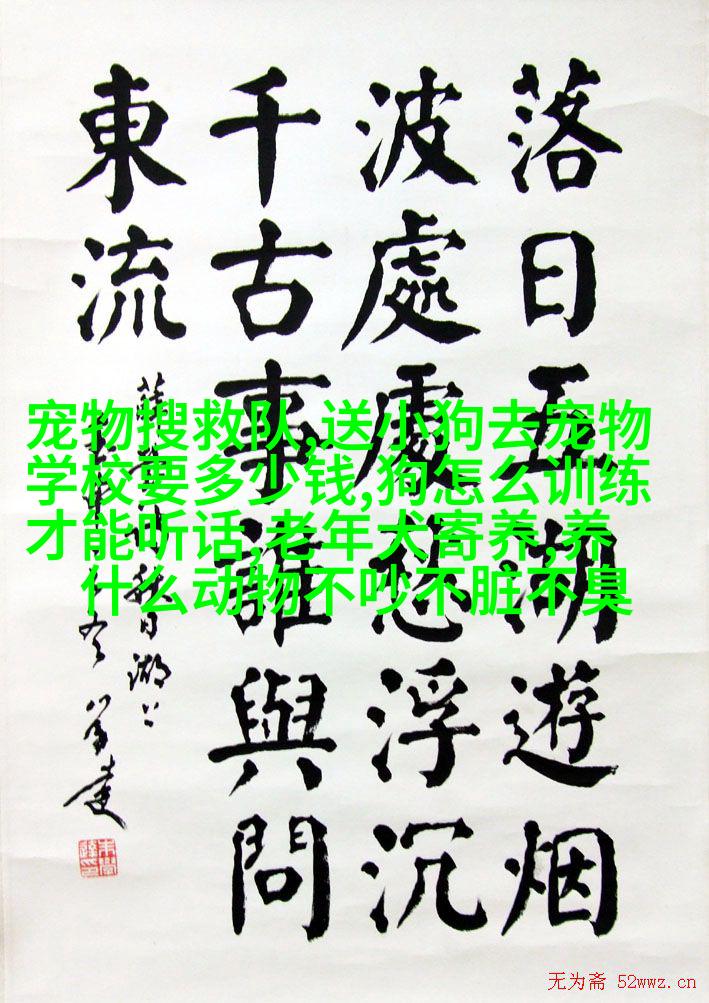 落日五湖遊烟
波處處愁浮沉
千古事誰與問
東流
薛瑩詩秋日湖上
宠物搜救队,送小狗去宠物
学校要多少钱,狗怎么训练
才能听话,老年犬寄养,养
什么动物不吵不脏不臭
无为斋 52wwz.cn